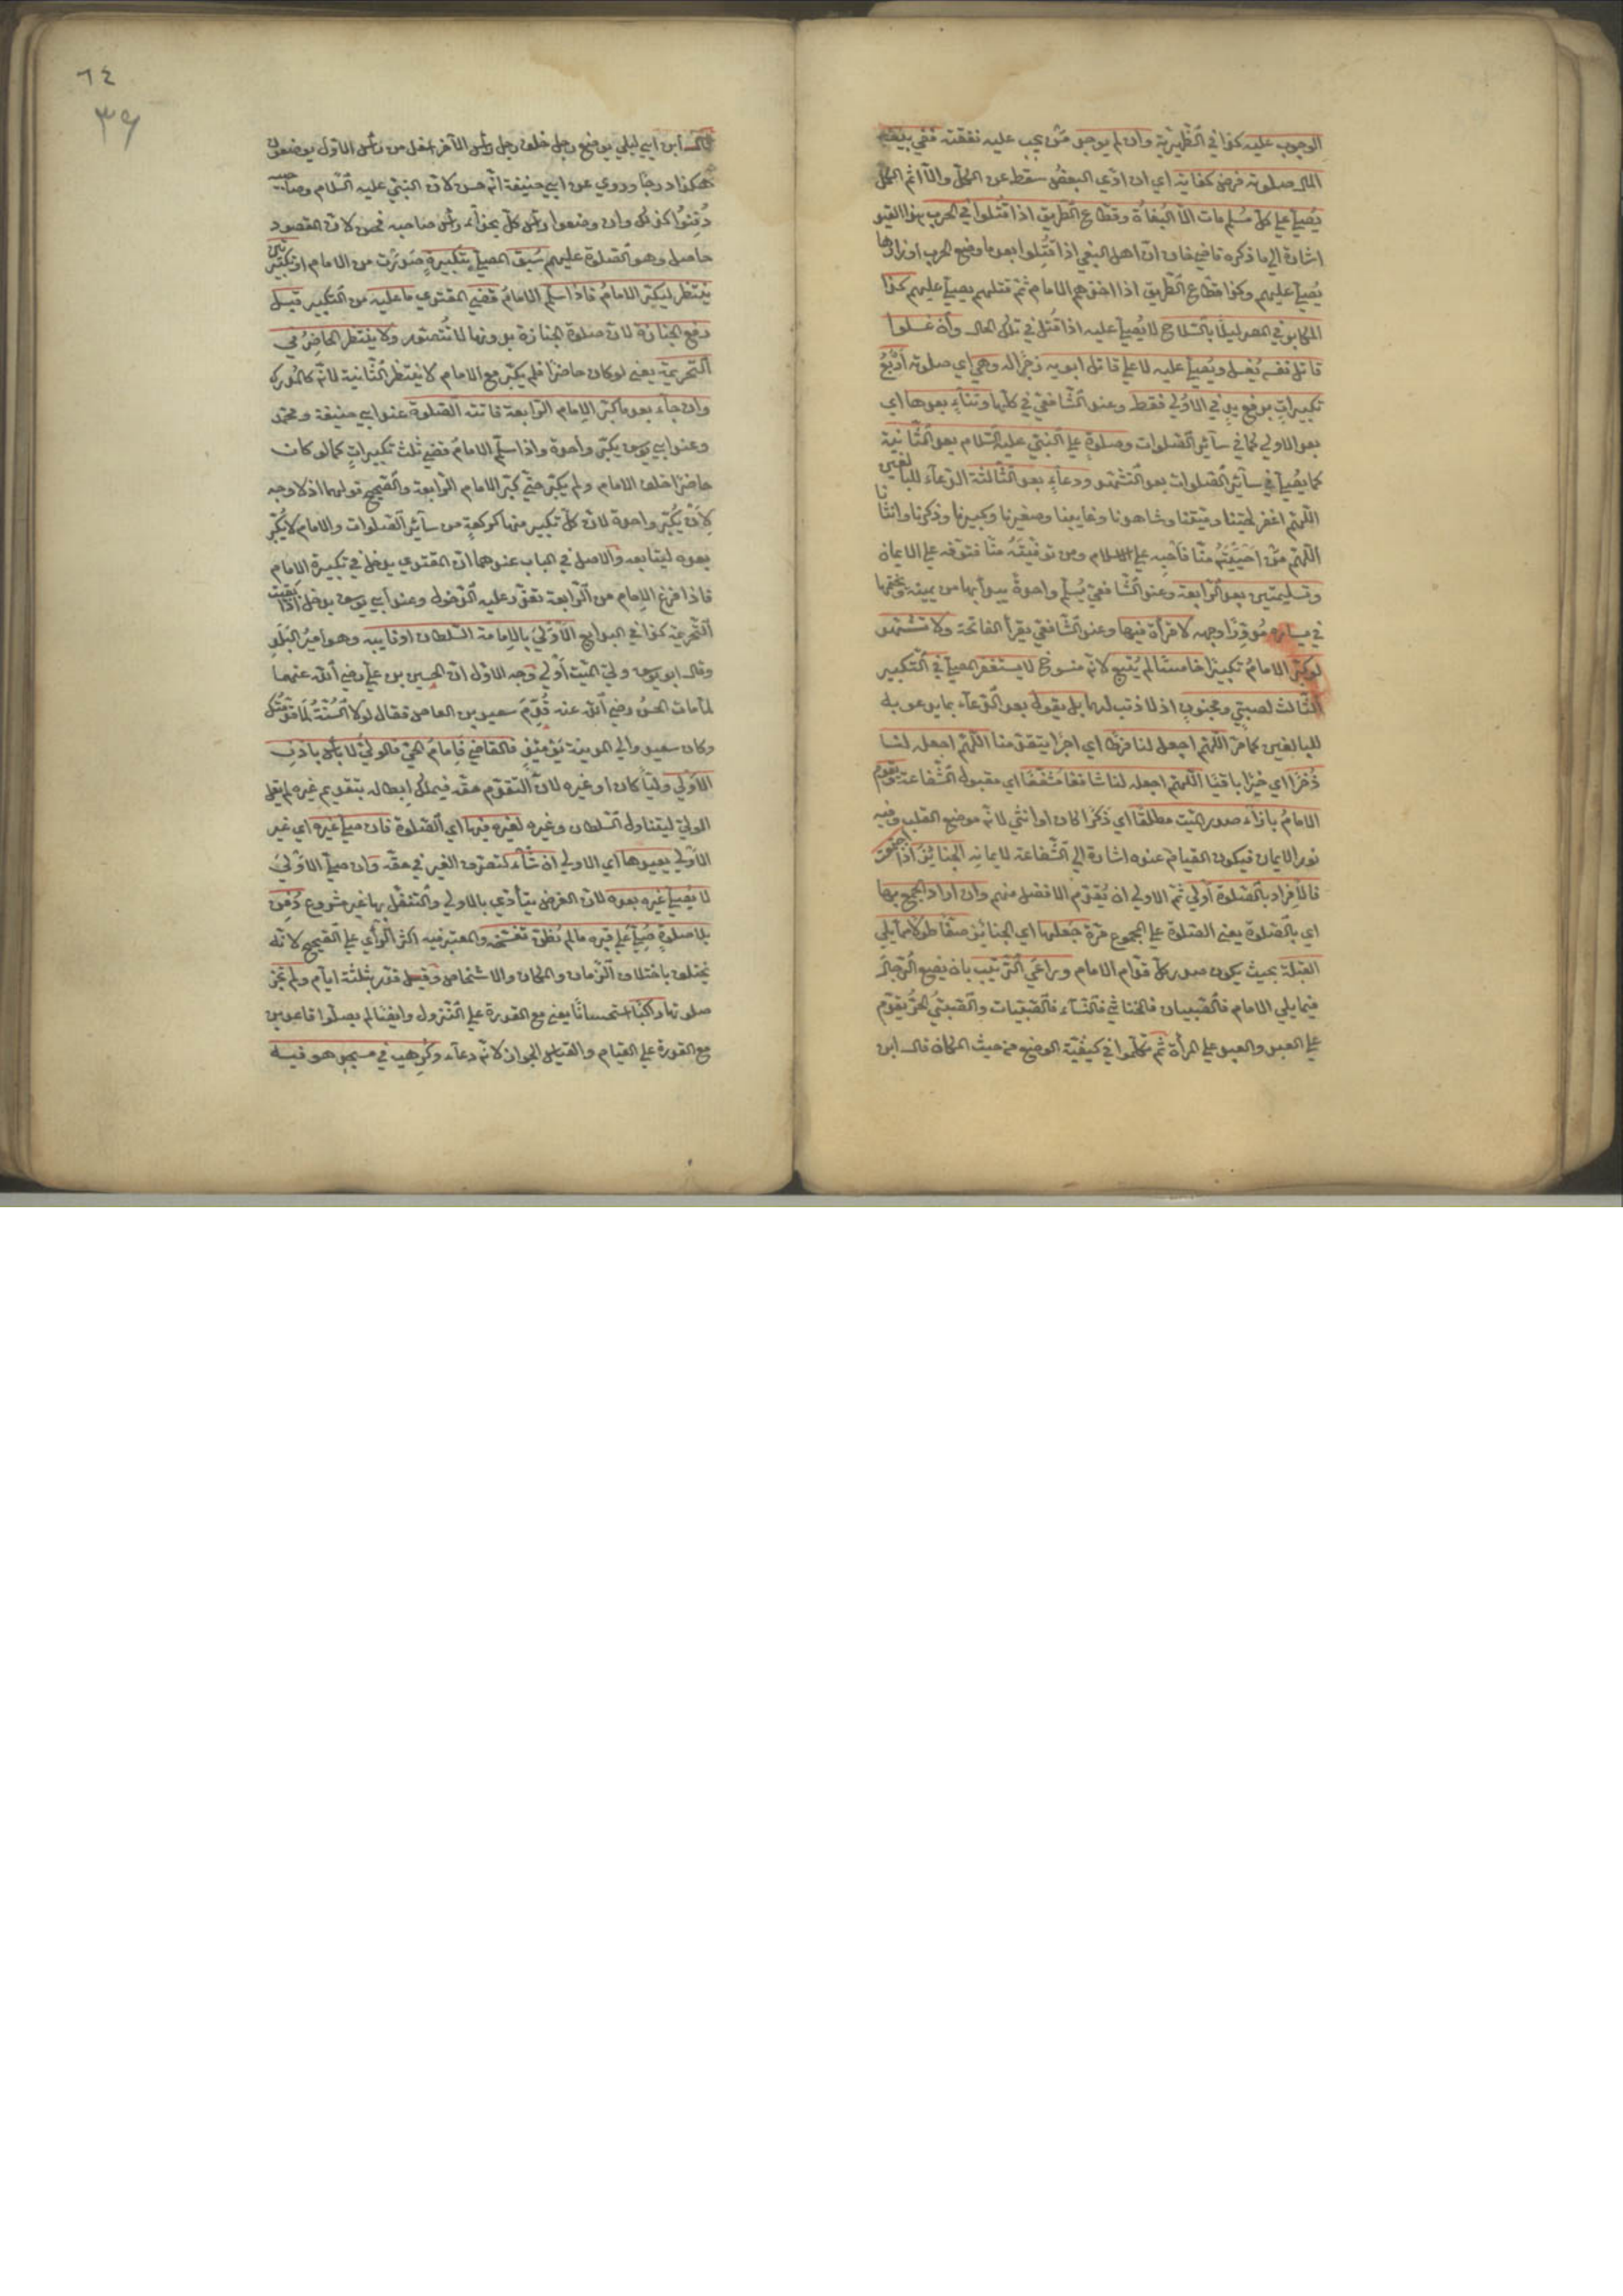 الوجوب عليه كذا في الظهيرية وان لم يوجد من يجب عليه نفقته ففي بيت
المال صلوته فرض كفاية اي ان ادى البعض سقط عن الكل والا اثم الكل
يُصلّى على كل مُسلم مات الا البُغاة وقطاع الطريق اذا قُتلوا في الحرب بهذا القيد
اشارة الى ما ذكره قاضيخان ان اهل البغي اذا قُتِلوا بعد ما وضع الحرب اوزارها
يُصلّى عليهم وكذا قطاع الطريق اذا اخذهم الامام ثم قتلهم يصلى عليهم كذا
المكابر في المصر ليلًا بالسلاح لا يُصلّى عليه اذا قُتل في تلك الحال وان غسلوا
قاتل نفسه يُغسل ويُصلّى عليه لا على قاتل ابويه زجرًا له وهي اي صلوته اَرْبَعُ
تكبيراتٍ برفع يدٍ في الاولى فقط وعند الشافعي في كلها وثناءٍ بعدها اي
بعد الاولى كما في سائر الصلوات وصلوةٍ على النبي عليه السلام بعد الثانية
كما يُصلّى في سائر الصلوات بعد التشهد ودعاءٍ بعد الثالثة الدعاء للبالغين
اللهم اغفر لحينا وميتنا وشاهدنا وغايبنا وصغيرنا وكبيرنا وذكرنا وانثانا
اللهم من احييتَهُ منّا فاَحْيِهِ على الاسلام ومن توفّيتَهُ منّا فتوفه على الايمان
وتسليمتين بعد الرابعة وعند الشافعي يُسلّم واحدةً يبدأ بها من يمينه ويختمها
في يساره مُدوِّرًا وجهه لا قرأة فيها وعند الشافعي يقرأ الفاتحة ولا تشهد
لو كبّر الامامُ تكبيرًا خامسًا لم يُتبع لانه منسوخ لا يستغفر المصلي في التكبير
الثالث لصبيٍّ ومجنونٍ اذ لا ذنب لهما بل يقول بعد الدعاء بما يدعو به
للبالغين كما مرّ اللهم اجعل لنا فرطًا اي اجرًا يتقدمنا اللهم اجعل لنا
ذُخرًا اي خيرًا باقيًا اللهم اجعله لنا شافعًا مُشفّعًا اي مقبول الشفاعة يقوم
الامامُ بازاء صدر الميت مطلقًا اي ذَكَرًا كان او انثى لانه موضع القلب وفيه
نور الايمان فيكون القيام عنده اشارة الى الشفاعة لايمانه الجنائِزُ اذا اجتمعت
فالاِفراد بالصلوة اَولى ثم الاولى ان يُقدّم الافضل منهم وان اراد الجمع بها
اي بالصلوة يعني الصلوة على المجموع مرّة جَعَلها اي الجنائز صفًّا طولًا مما يلي
القبلة بحيث يكون صدر كلٍّ قدّام الامام وراعَى الترتيب بان يضع الرجال
فيما يلي الامام فالصبيان فالخناثى فالنساء فالصبيات والصبيُّ الحرُّ يقدّم
على العبد والعبد على المرأة ثم تكلموا في كيفيّة الوضع من حيث المكان قال ابن
٦٤
٣٩
قال ابن ابي ليلى يوضع رجل خلف رجل رأس الآخر اسفل من رأس الاول يوضعون
هكذا درجًا وروي عن ابي حنيفة انه حسن لان النبي عليه السلام وصاحبيه
دُفِنُوا كذلك وان وضعوا رأس كل بحذاء رأس صاحبه فحسن لان المقصود
حاصل وهو الصلوة عليهم سُبق المصلي بتكبيرةٍ صَدَرَت من الامام او تكبيرتين
ينتظر ليكبّر الامامُ فاذا سلّم الامامُ قضى المقتدي ما عليه من التكبير قبل
رفع الجنازة لان صلوة الجنازة بدونها لا تُتصوّر ولا ينتظر الحاضرُ في
التحريمة يعني لو كان حاضرًا فلم يكبّر مع الامام لا ينتظر الثانية لانه كالمدرك
وان جاء بعد ما كبّر الامام الرابعة فاتته الصلوة عند ابي حنيفة ومحمد
وعند ابي يوسف يكبّر واحدة واذا سلّم الامامُ قضى ثلث تكبيراتٍ كما لو كان
حاضرًا خلف الامام ولم يكبّر حتى كبّر الامام الرابعة والصحيح قولهما اذ لا وجه
لِاَنْ يُكبّر واحدة لان كل تكبير منها كركعةٍ من سائر الصلوات والامام لا يُكبّر
بعده ليتابعه والاصل في الباب عندهما ان المقتدي يدخل في تكبيرة الامام
فاذا فرغ الامام من الرابعة تعذّر عليه الدخول وعند ابي يوسف يدخل اذا بقيت
التحريمة كذا في البدايع الاَوْلى بالامامة السلطان او نايبه وهو اميرُ البلدِ
وقال ابو يوسف ولي الميت اَولى وجه الاول ان الحسين بن علي رضي الله عنهما
لمّا مات الحسن رضي الله عنه قُدِّمَ سعيد بن العاص فقال لولا السُنّةُ لما قدّمتك
وكان سعيد والي المدينة يَومَئِذٍ فالقاضي فإمامُ الحيّ فالوليُّ لا بأس باذنِ
الاَوْلى وليًّا كان او غيره لان التقدّم حقه فيملك ابطاله بتقديم غيره لم يقل
الولي ليتناول السلطان وغيره لغيره فيها اي الصلوة فان صلى غيره اي غير
الاَولى يعيدها اي الاولى ان شاء لتصرّف الغير في حقّه وان صلى الاَولىَ
لا يُصلّي غيره بعده لان الفرض يتأدى بالاولى والتنفّل بها غير مشروع دُفِنَ
بلا صلوةٍ صُلِّيَ على قبره ما لم يُظنّ تفسّخه والمعتبر فيه اكثر الرأي على الصحيح لانه
يختلف باختلاف الزمان والمكان والاشخاص وقيل قدّر بثلثة ايام ولم تجز
صلوتها راكبًا استحسانًا يعني مع القدرة على النزول وايضًا لم يصلّوا قاعدين
مع القدرة على القيام والقياس الجواز لانه دعاء وكُرِهت في مسجد هو فيه